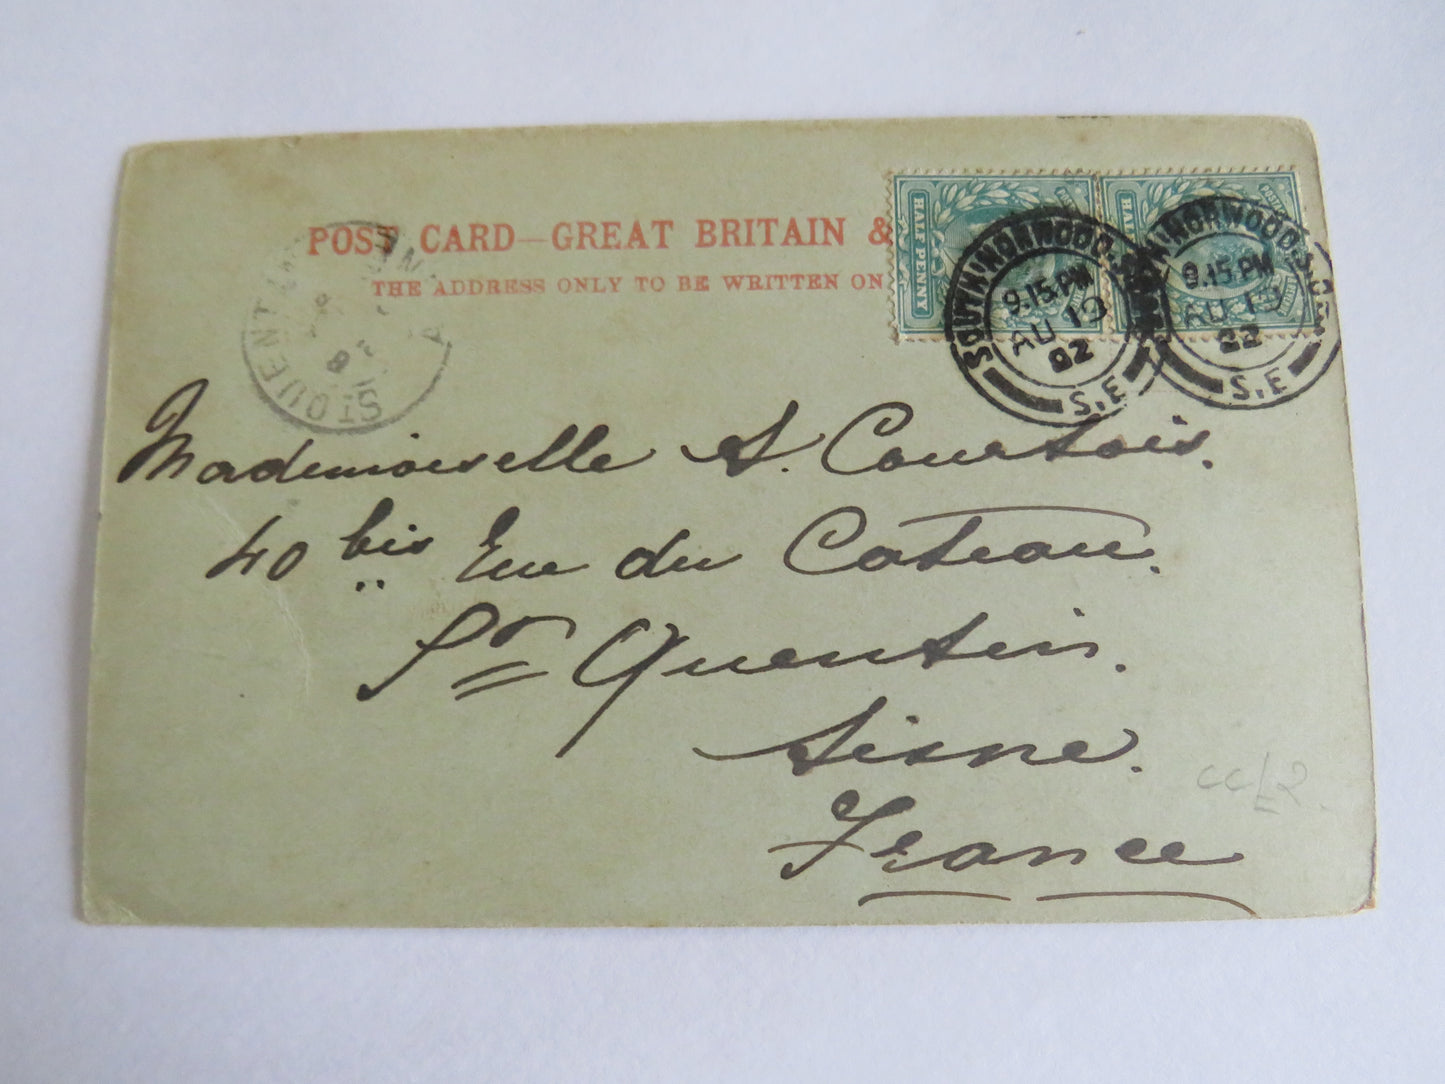 POST CARD—GREAT BRITAIN &
THE ADDRESS ONLY TO BE WRITTEN ON
HALF PENNY
HALF
SOUTH NORWOOD S.O.
9.15 PM
AU 19
02
S.E
NORWOOD S.O.
9.15 PM
AU 19
02
S.E
ST QUENTIN
Mademoiselle A. Courtois.
40 bis Rue du Cateau.
St Quentin.
Aisne.
France